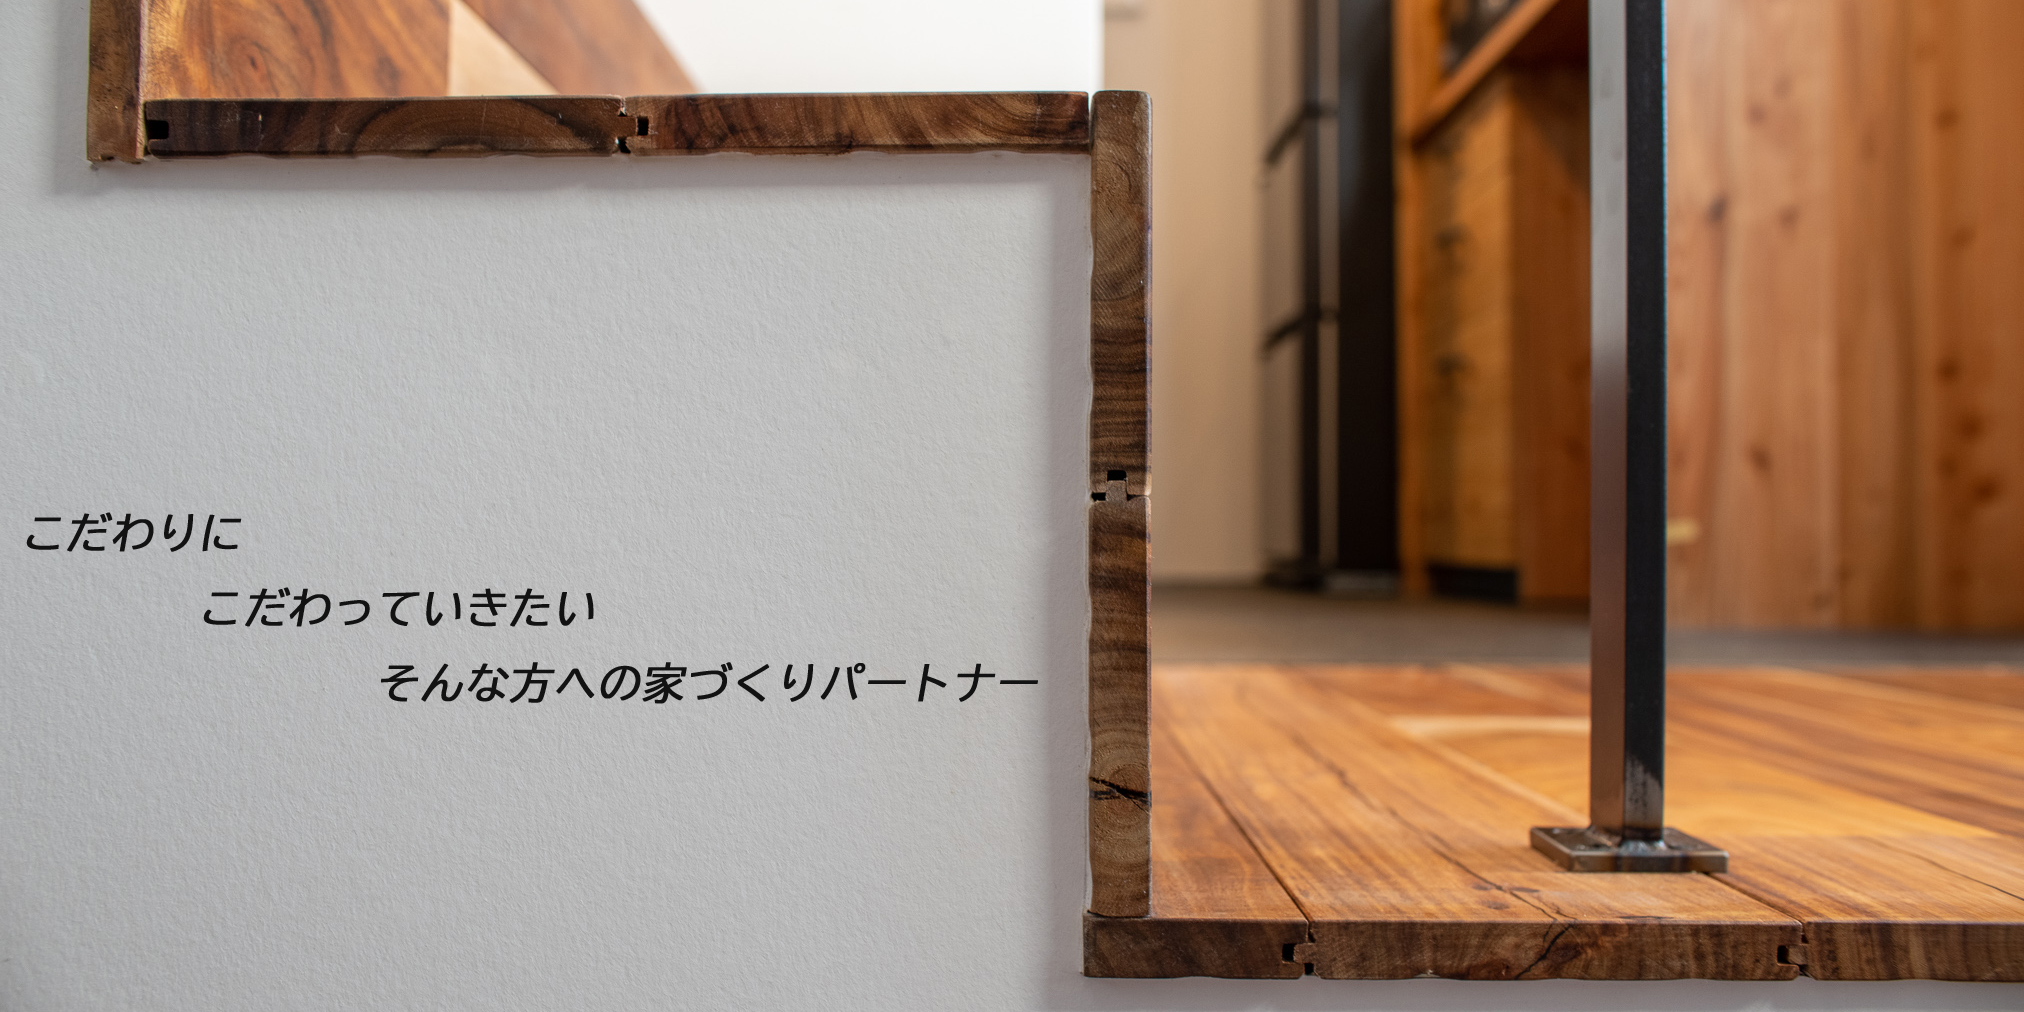 こだわりに
こだわっていきたい
そんな方への家づくりパートナー